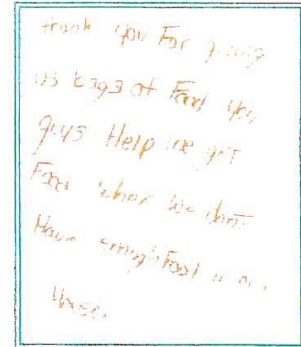 thank you For giving
us bags of Food you
guys Help us get
Food when we don't
Have enough Food in our
House.